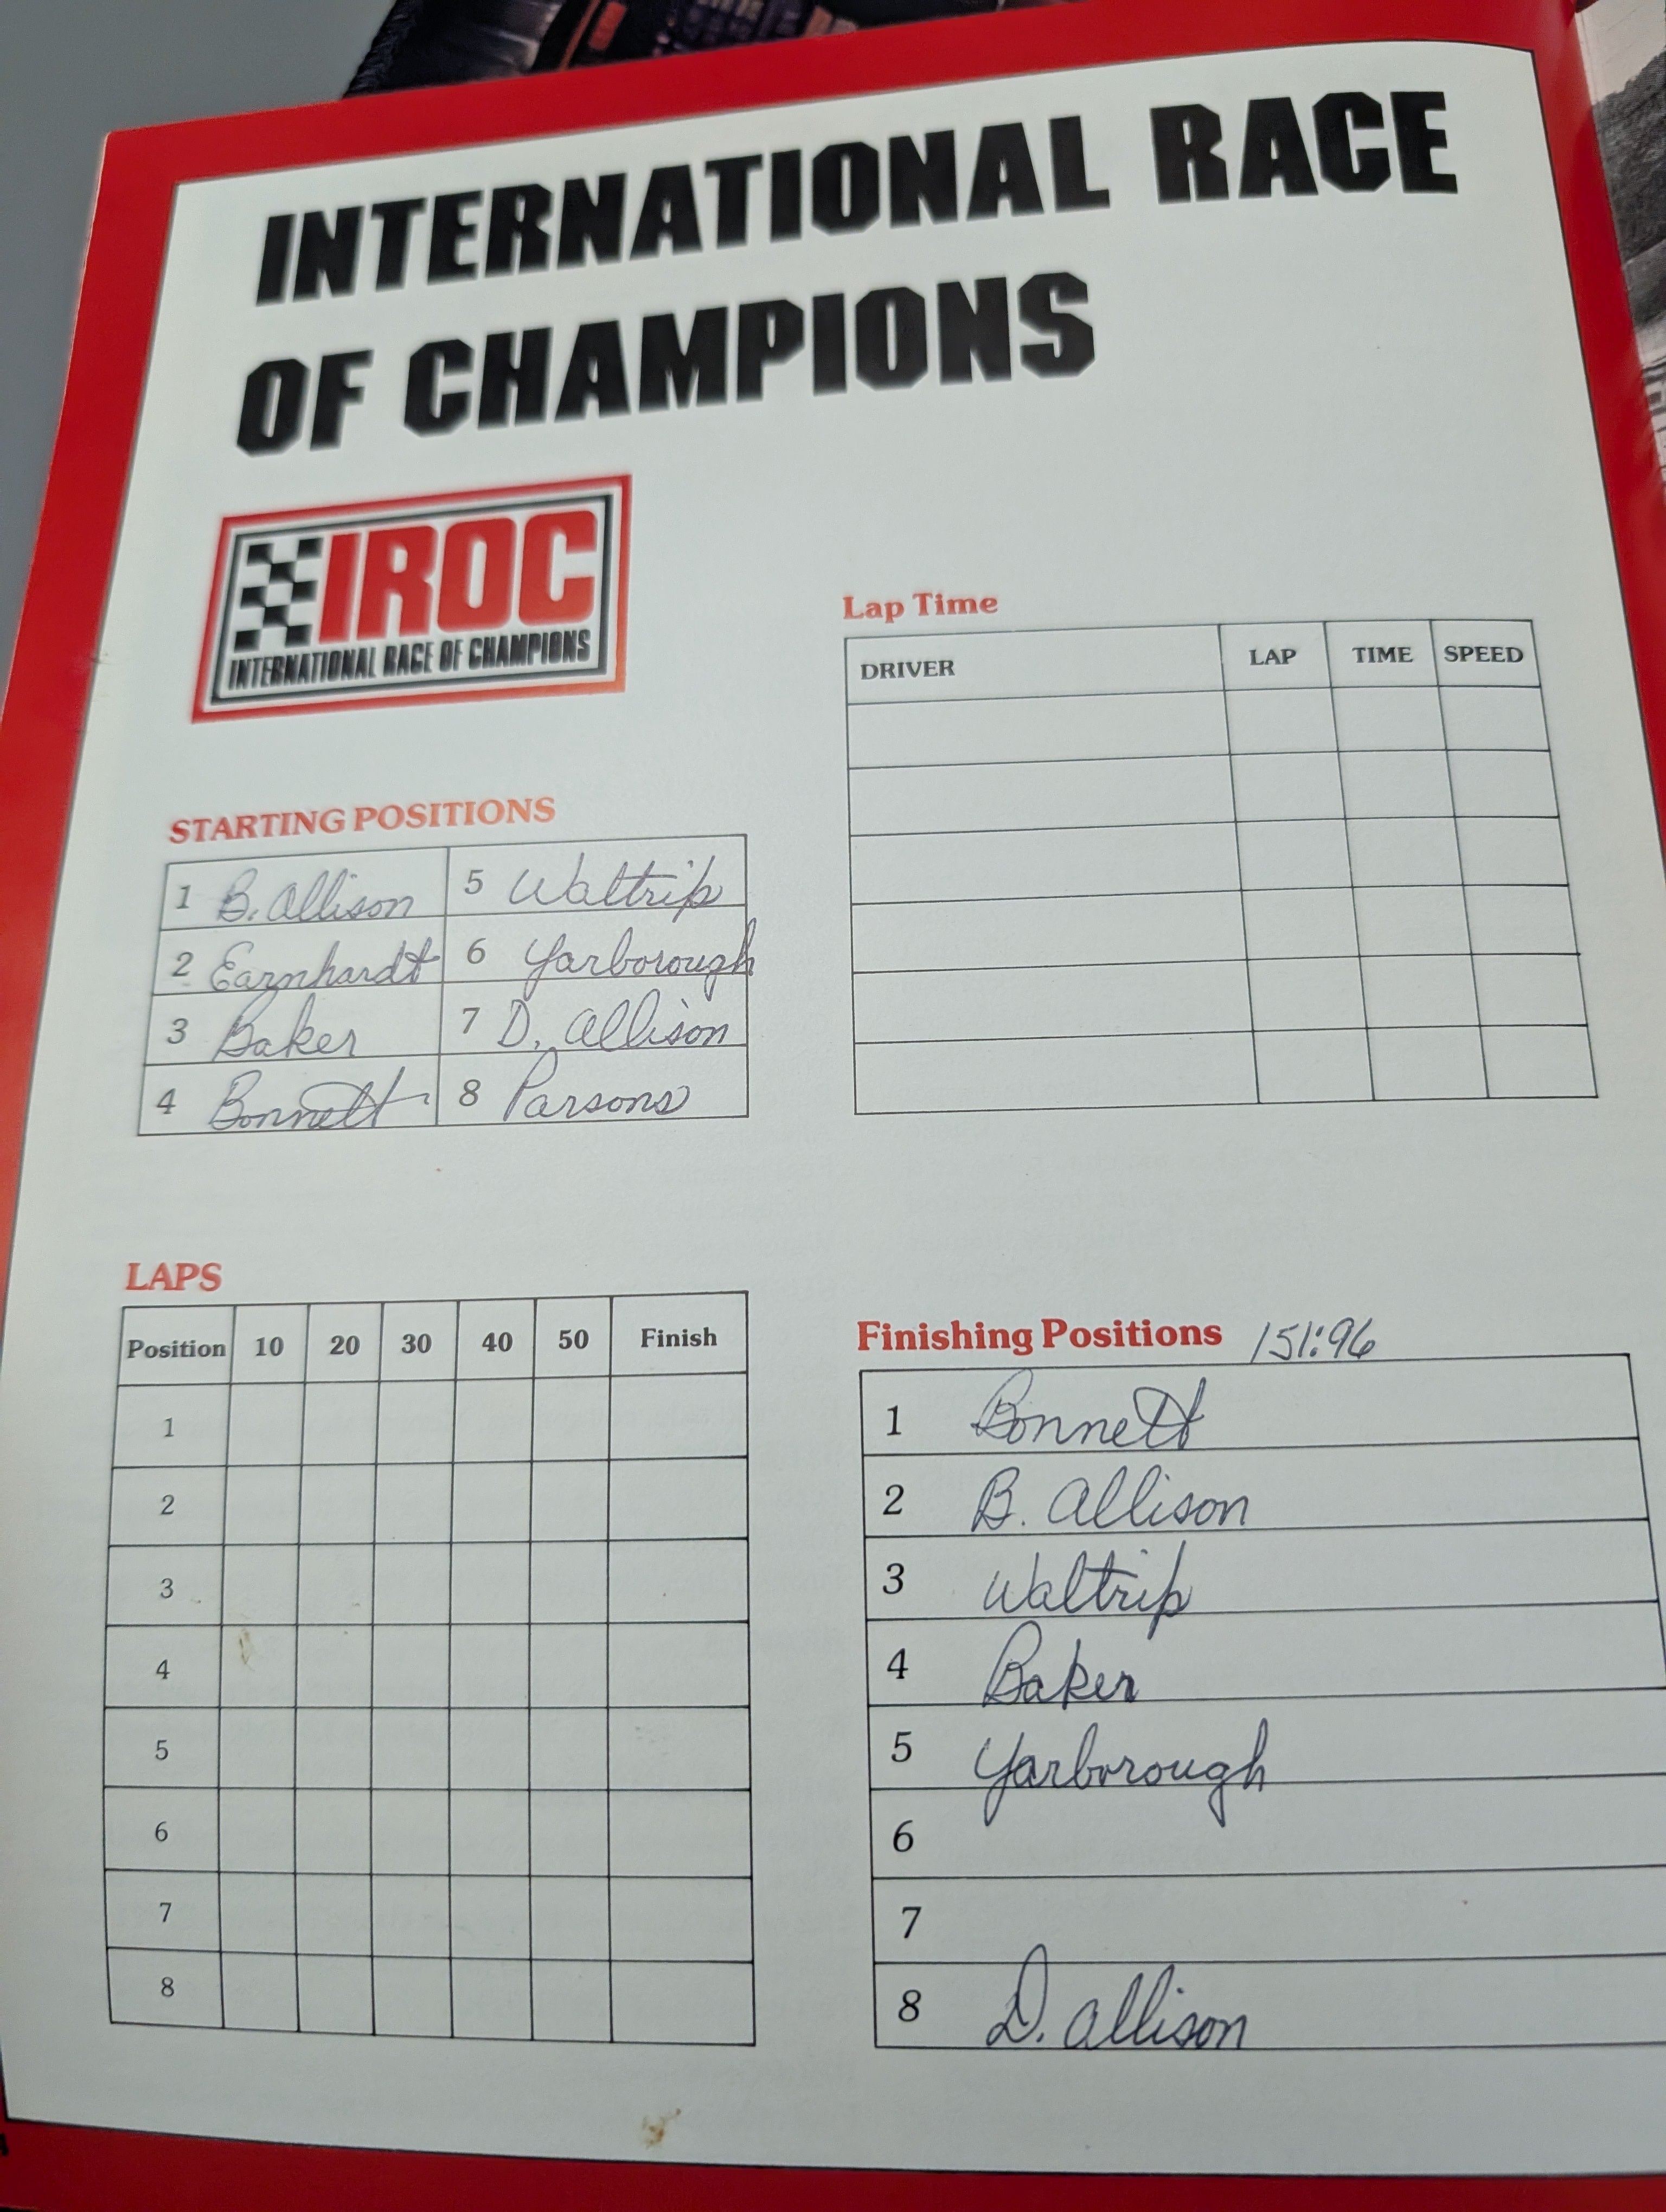 INTERNATIONAL RACE
OF CHAMPIONS
IROC
INTERNATIONAL RACE OF CHAMPIONS
STARTING POSITIONS
1 B. Allison 5 Waltrip
2 Earnhardt 6 Yarborough
3 Baker 7 D. Allison
4 Bonnett 8 Parsons
Lap Time
DRIVER LAP TIME SPEED
LAPS
Position 10 20 30 40 50 Finish
1
2
3
4
5
6
7
8
Finishing Positions 151:96
1 Bonnett
2 B. Allison
3 Waltrip
4 Baker
5 Yarborough
6
7
8 D. Allison